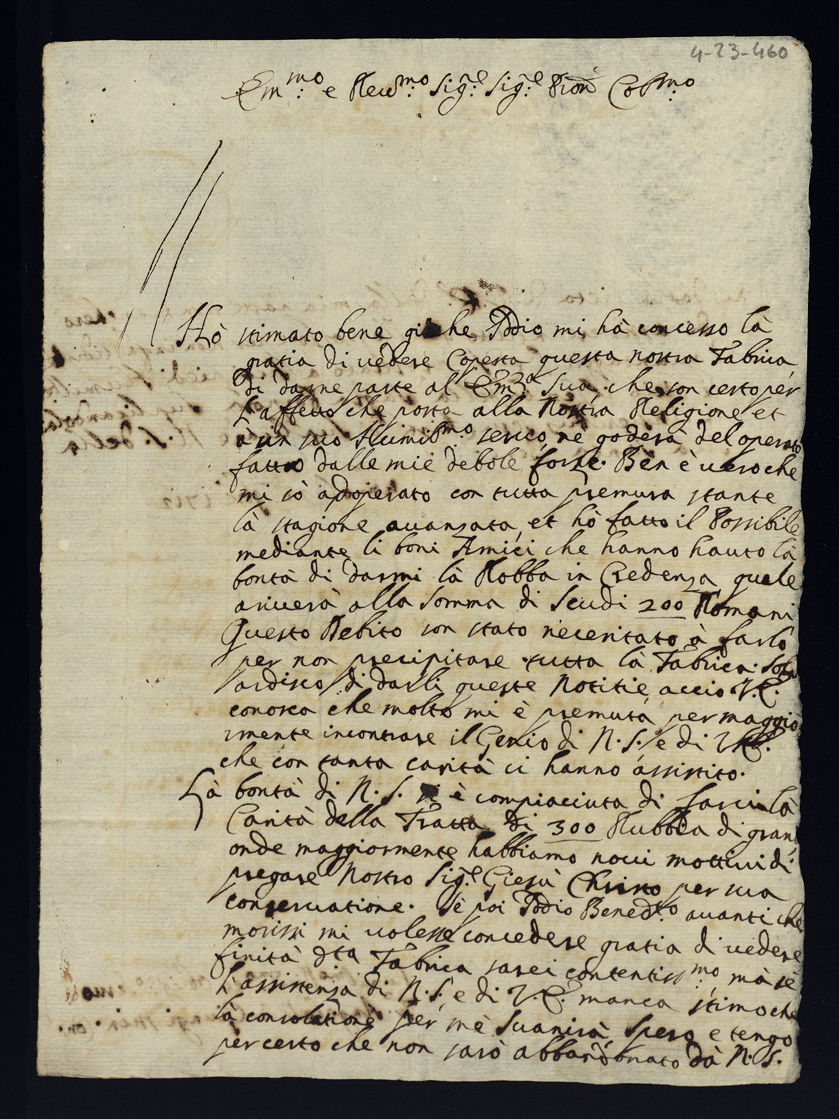 4-23-460
Em.mo e Rev.mo Sig.e Sig.e Pron Col.mo
Hò stimato bene giache Iddio mi hà concesso là
gratia di vedere Coperta questa nostra Fabrica
di darne parte al Em.za Sua, che son certo per
L'affetto che porta alla Nostra Religione et
à un suo Humil.mo servo, ne goderà del operato
fatto dalle mie debole forze. Ben è vero che
mi sò adoperato con tutta premura stante
là stagione avanzata, et hò fatto il Possibile
mediante li boni Amici che hanno hauto là
bontà di darmi là Robba in Credenza quale
ariverà alla somma di Scudi 200 Romani
Questo Debito son stato necessitato à farlo
per non precipitare tutta là Fabrica. Solo
ardisco di darli queste Notitie acciò V.E.
conosca che molto mi è premuta per maggio
rmente incontrare il Genio di N.S. e di V.E.
che con tanta carità ci hanno assistito.
Là bontà di N.S. è compiaciuta di farci là
Carità della Tratta di 300 Rubbia di grano
onde maggiormente habbiamo novi mottivi di
pregare Nostro Sig.e Giesù Christo per sua
conservatione. Sè poi Iddio Bened.to avanti che
morissi mi volesse concedere gratia di vedere
finità d.ta Fabrica sarei contentiss.mo mà sè
L'assistenza di N.S. e di V.E. manca stimo che
là consolatione per mè svanirà, spero, e tengo
per certo che non sarò abbandonato dà N.S.